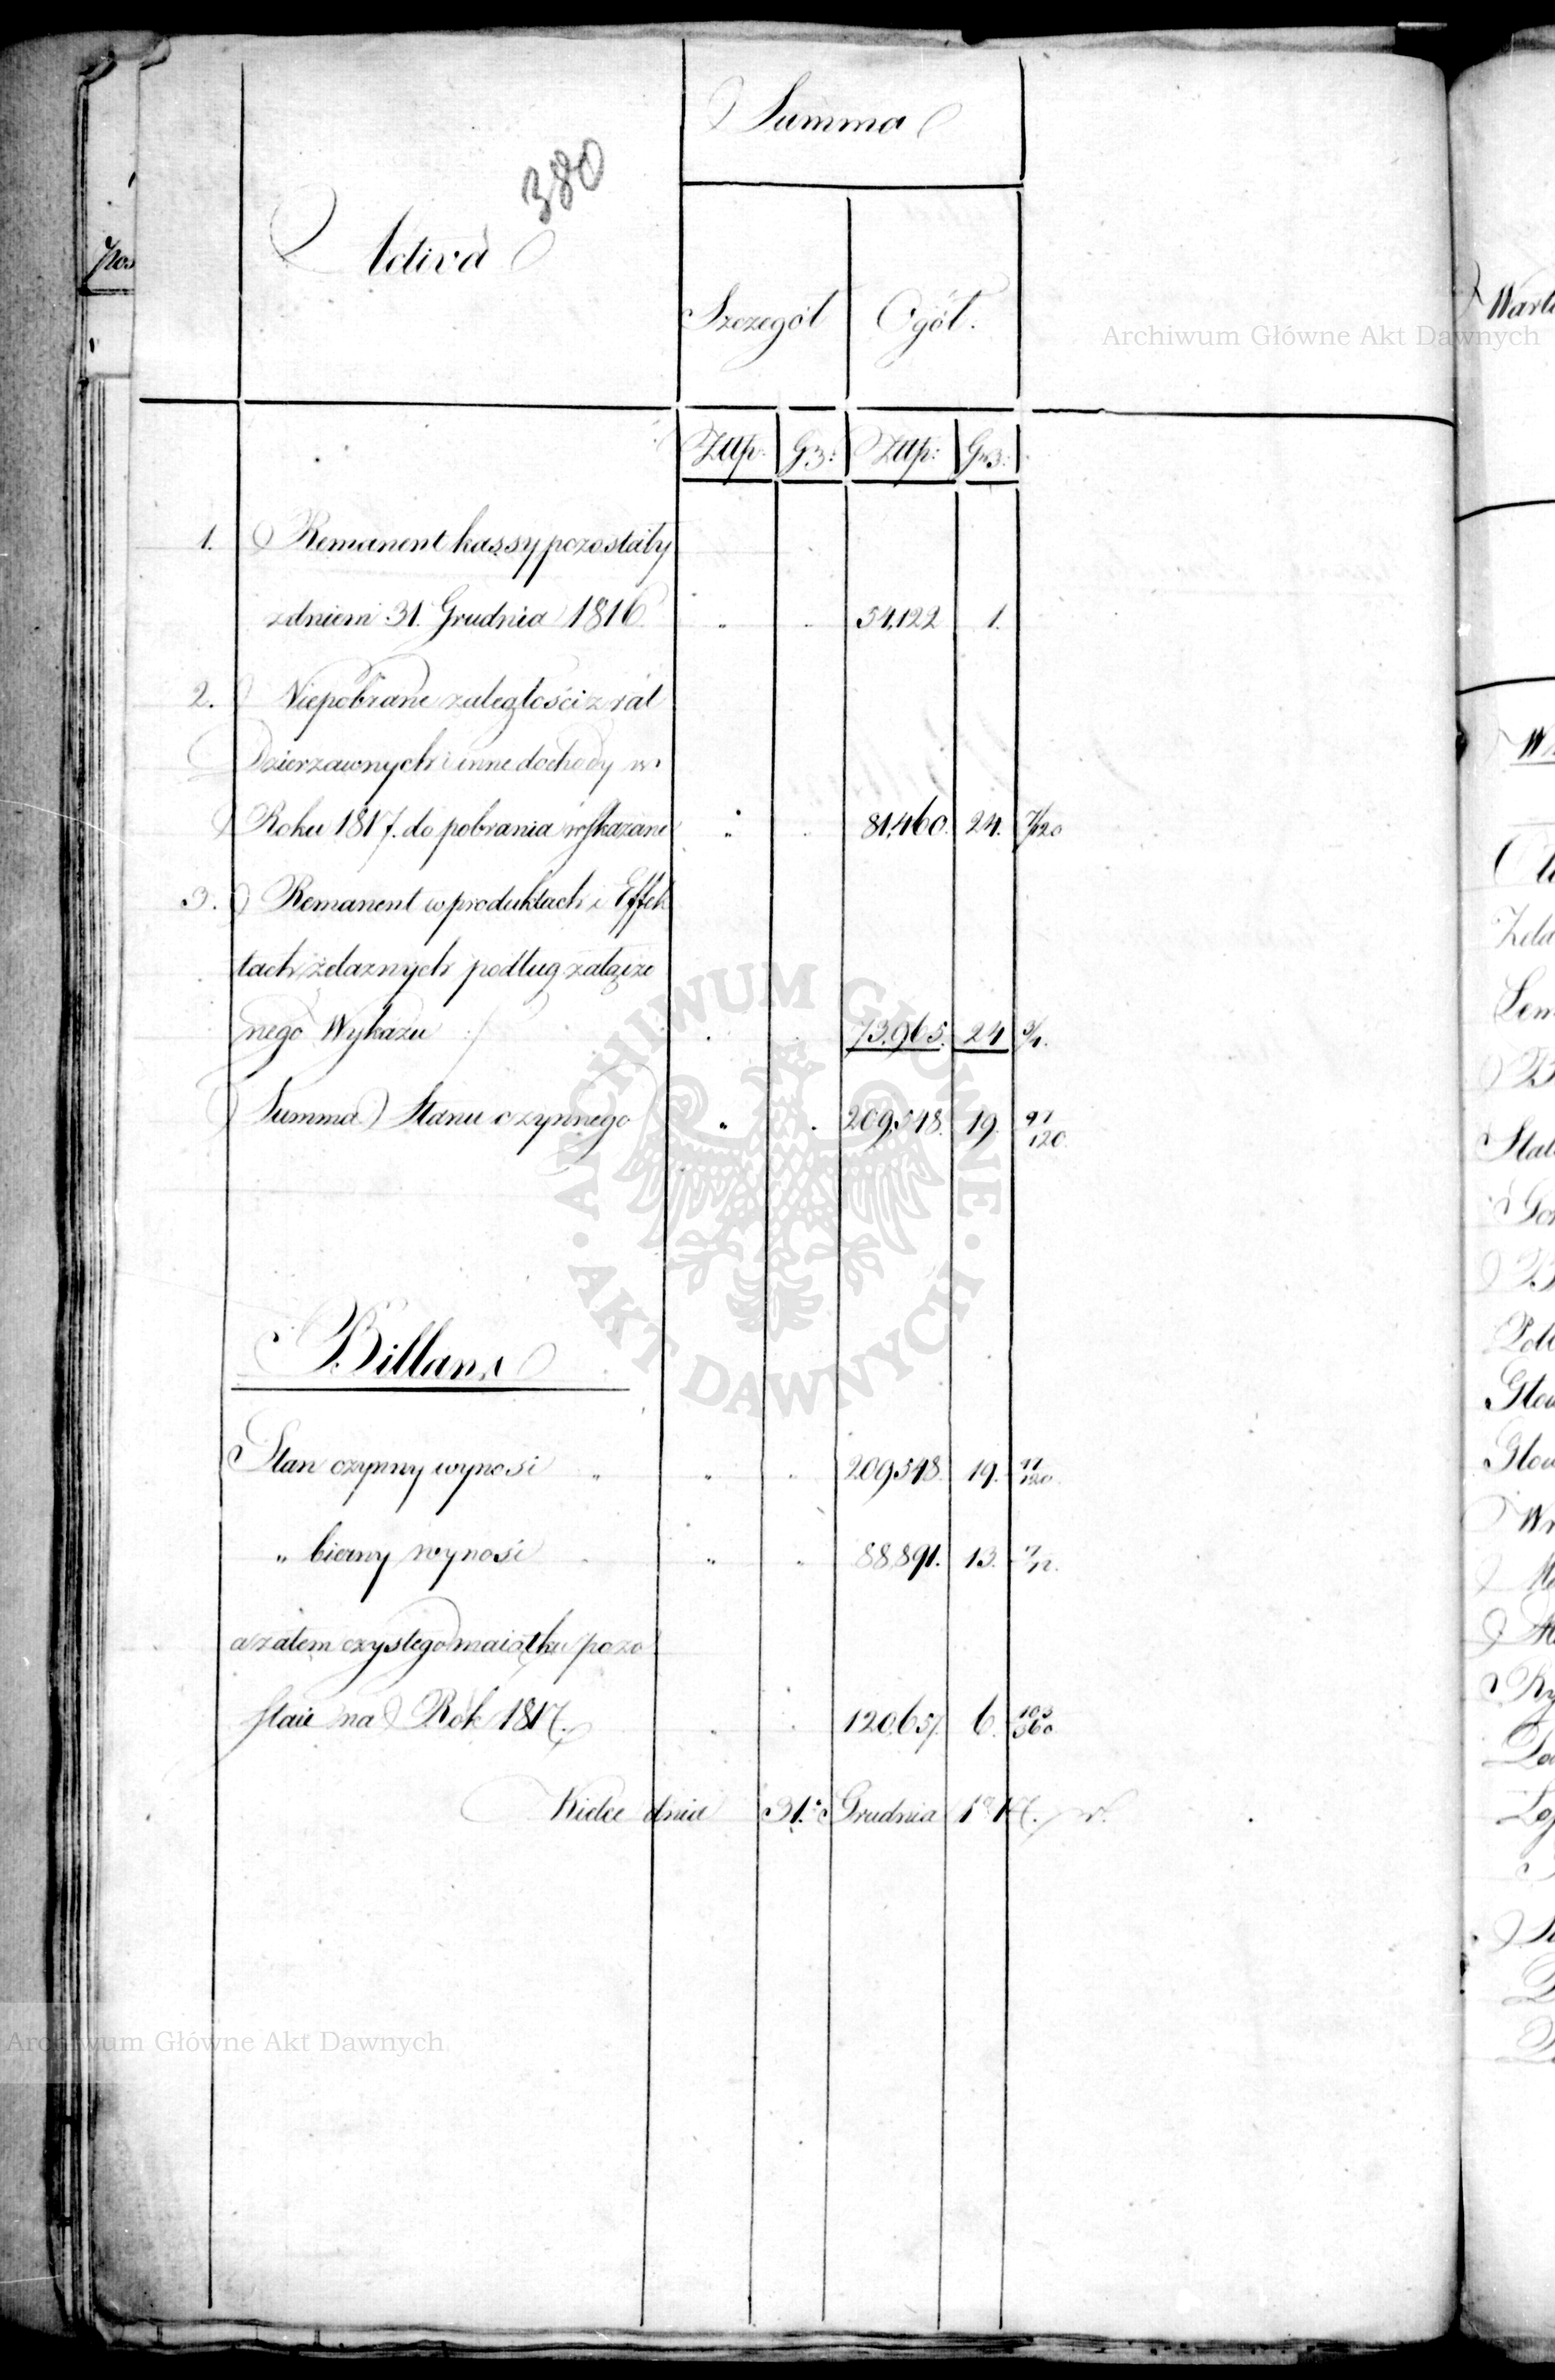 Summa
380
Activa
Szczegół Ogół.
Złlp: Gr: Złlp: Gr:
1. Remanent kassy pozostały
z dniem 31. Grudnia 1816 " " 54,122 1.
2. Niepobrane zaległości z rat
Dzierzawnych i inne dochody w
Roku 1817. do pobrania wskazane " " 81,460. 24. 7/120
3. Remanent w produktach i Effek
tach żelaznych podług załącze
nego Wykazu 73,965. 24 3/4.
Summa Stanu czynnego " " 209,548. 19. 97/120.
Billans
Stan czynny wynosi " " " 209,548. 19. 97/120.
" bierny wynosi " " 88,891. 13. /12.
a zatem czystego maiątku pozo
staie na Rok 1817. " " 120,657. 6. /360
Kielce dnia 31. Grudnia r.
Archiwum Główne Akt Dawnych
ARCHIWUM GŁÓWNE AKT DAWNYCH
Archiwum Główne Akt Dawnych